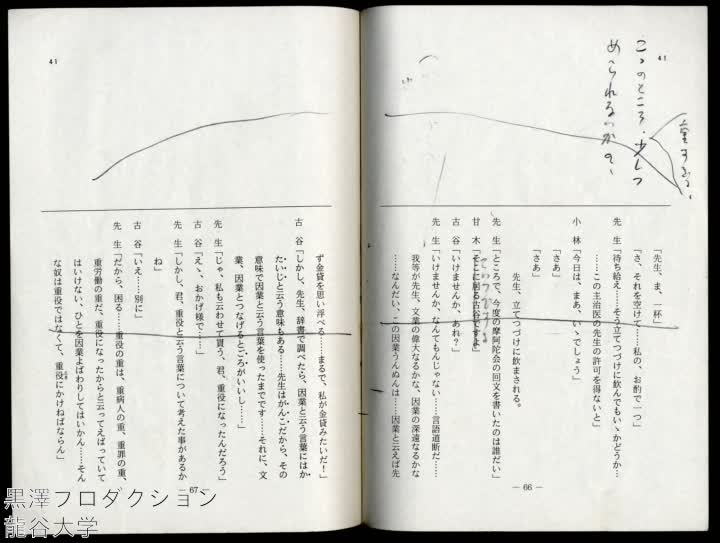 41
こゝのところ、少しつ
められないかの、
重すぎる、
「先生、ま、一杯」
「さ、それを空けて……私の、お酌で一つ」
先 生「待ち給え……そう立てつづけに飲んでもいゝかどうか…
……この主治医の先生の許可を得ないと」
小 林「今日は、まあ、いゝでしょう」
「さあ」
「さあ」
先生、立てつづけに飲まされる。
先 生「ところで、今度の摩阿陀会の回文を書いたのは誰だい」
甘 木「そこに居る古谷ですよ」
古 谷「いけませんか、あれ?」
先 生「いけませんか、なんてもんじゃない……言語道断だ……
我等が先生、文業の偉大なるかな、因業の深遠なるかな
……なんだい、この因業うんぬんは……因業と云えば先
― 66 ―
41
ず金貸を思い浮べる……まるで、私が金貸みたいだ!」
古 谷「しかし、先生、辞書で調べたら、因業と云う言葉にはか
たいじと云う意味もある……先生はがんこだから、その
意味で因業と云う言葉を使ったまでです……それに、文
業、因業とつなげるとごろがいいし……」
先 生「じゃ、私も云わせて貰う、君、重役になったんだろう」
古 谷「えゝ、おかげ様で……」
先 生「しかし、君、重役と云う言葉について考えた事があるか
ね」
古 谷「いえ……別に」
先 生「だから、困る……重役の重は、重病人の重、重罪の重、
重労働の重だ、重役になったからと云ってえばっていて
はいけない、ひとを因業よばわりしてはいかん……そん
な奴は重役ではなくて、重役にかけねばならん」
― 67 ―
黒澤プロダクション
龍谷大学